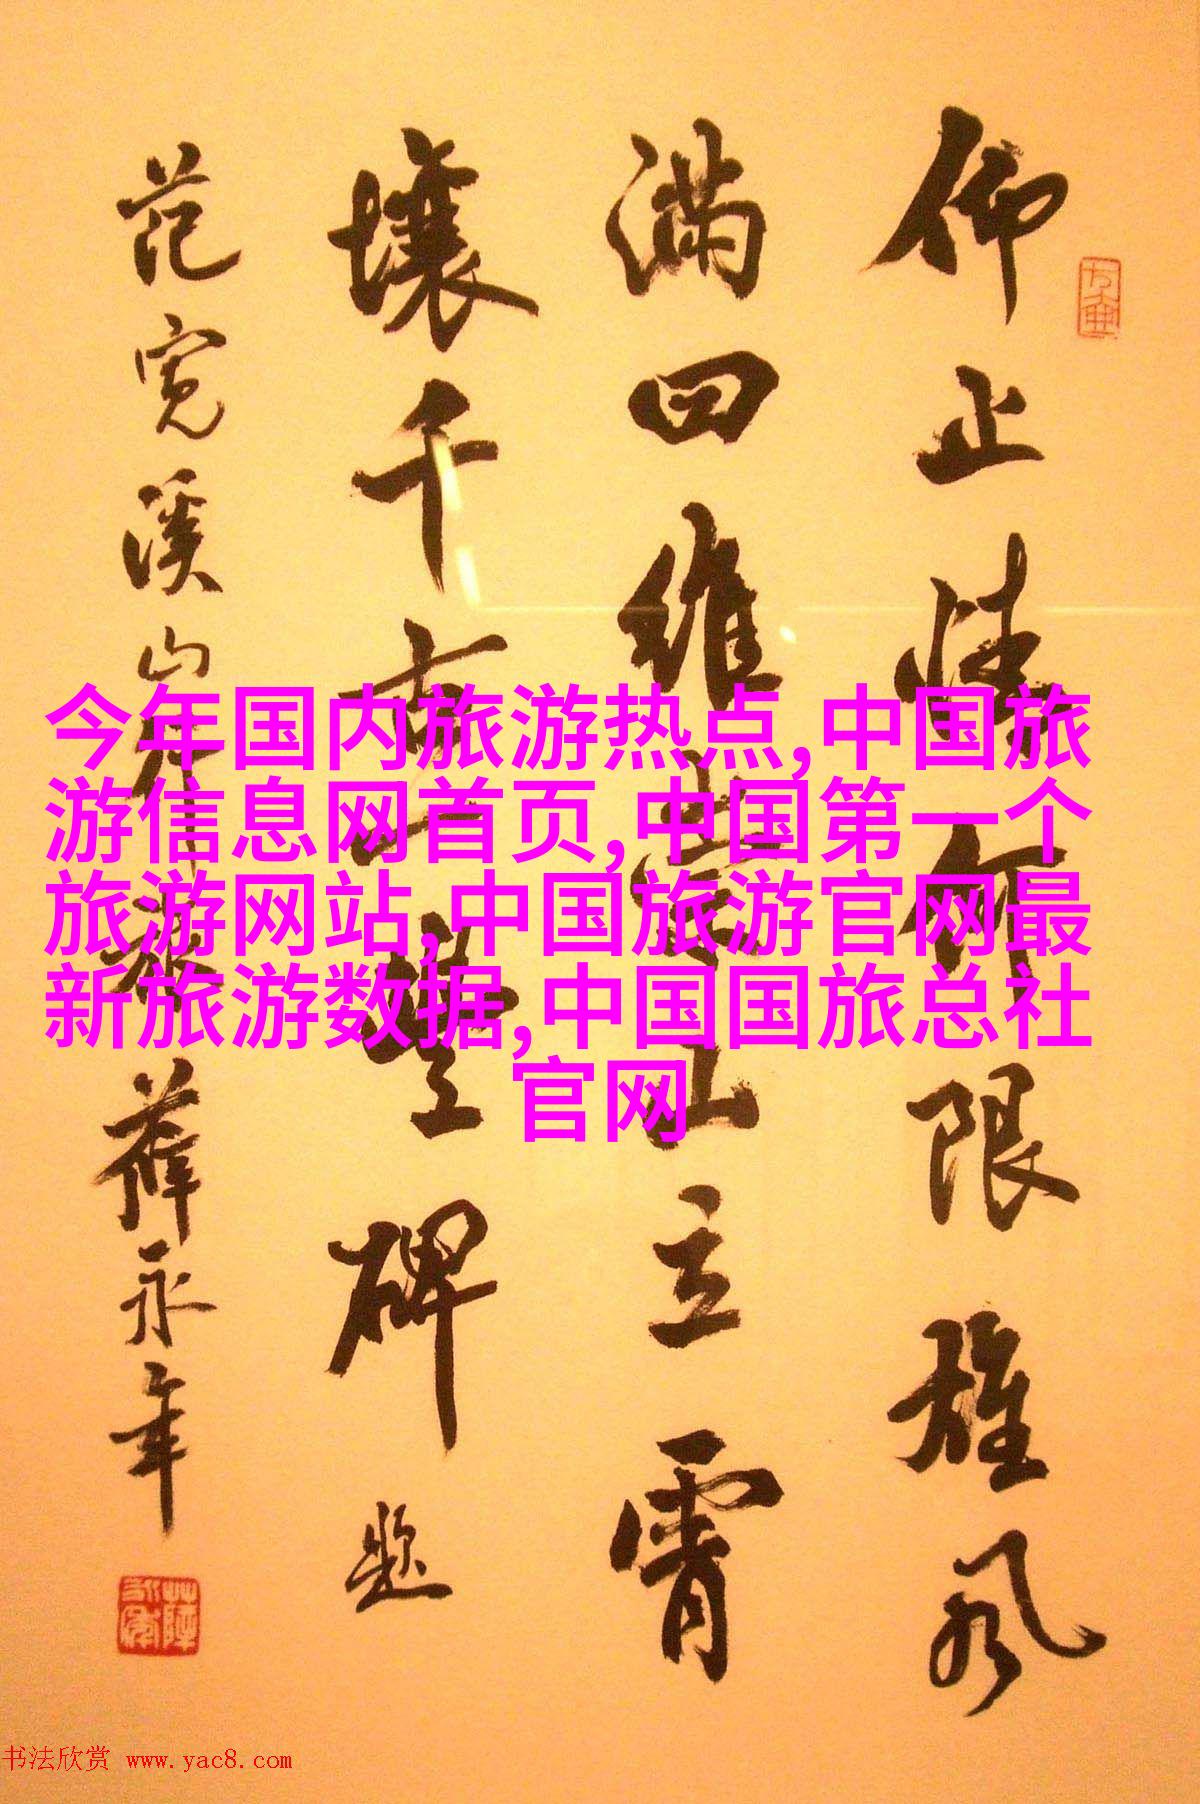 仰止情何限雄风
满四维崇山立霄
壤千古一豐碑题
范宽溪山行旅 薛永年
今年国内旅游热点,中国旅
游信息网首页,中国第一个
旅游网站,中国旅游官网最
新旅游数据,中国国旅总社
官网
书法欣赏 www.yac8.com